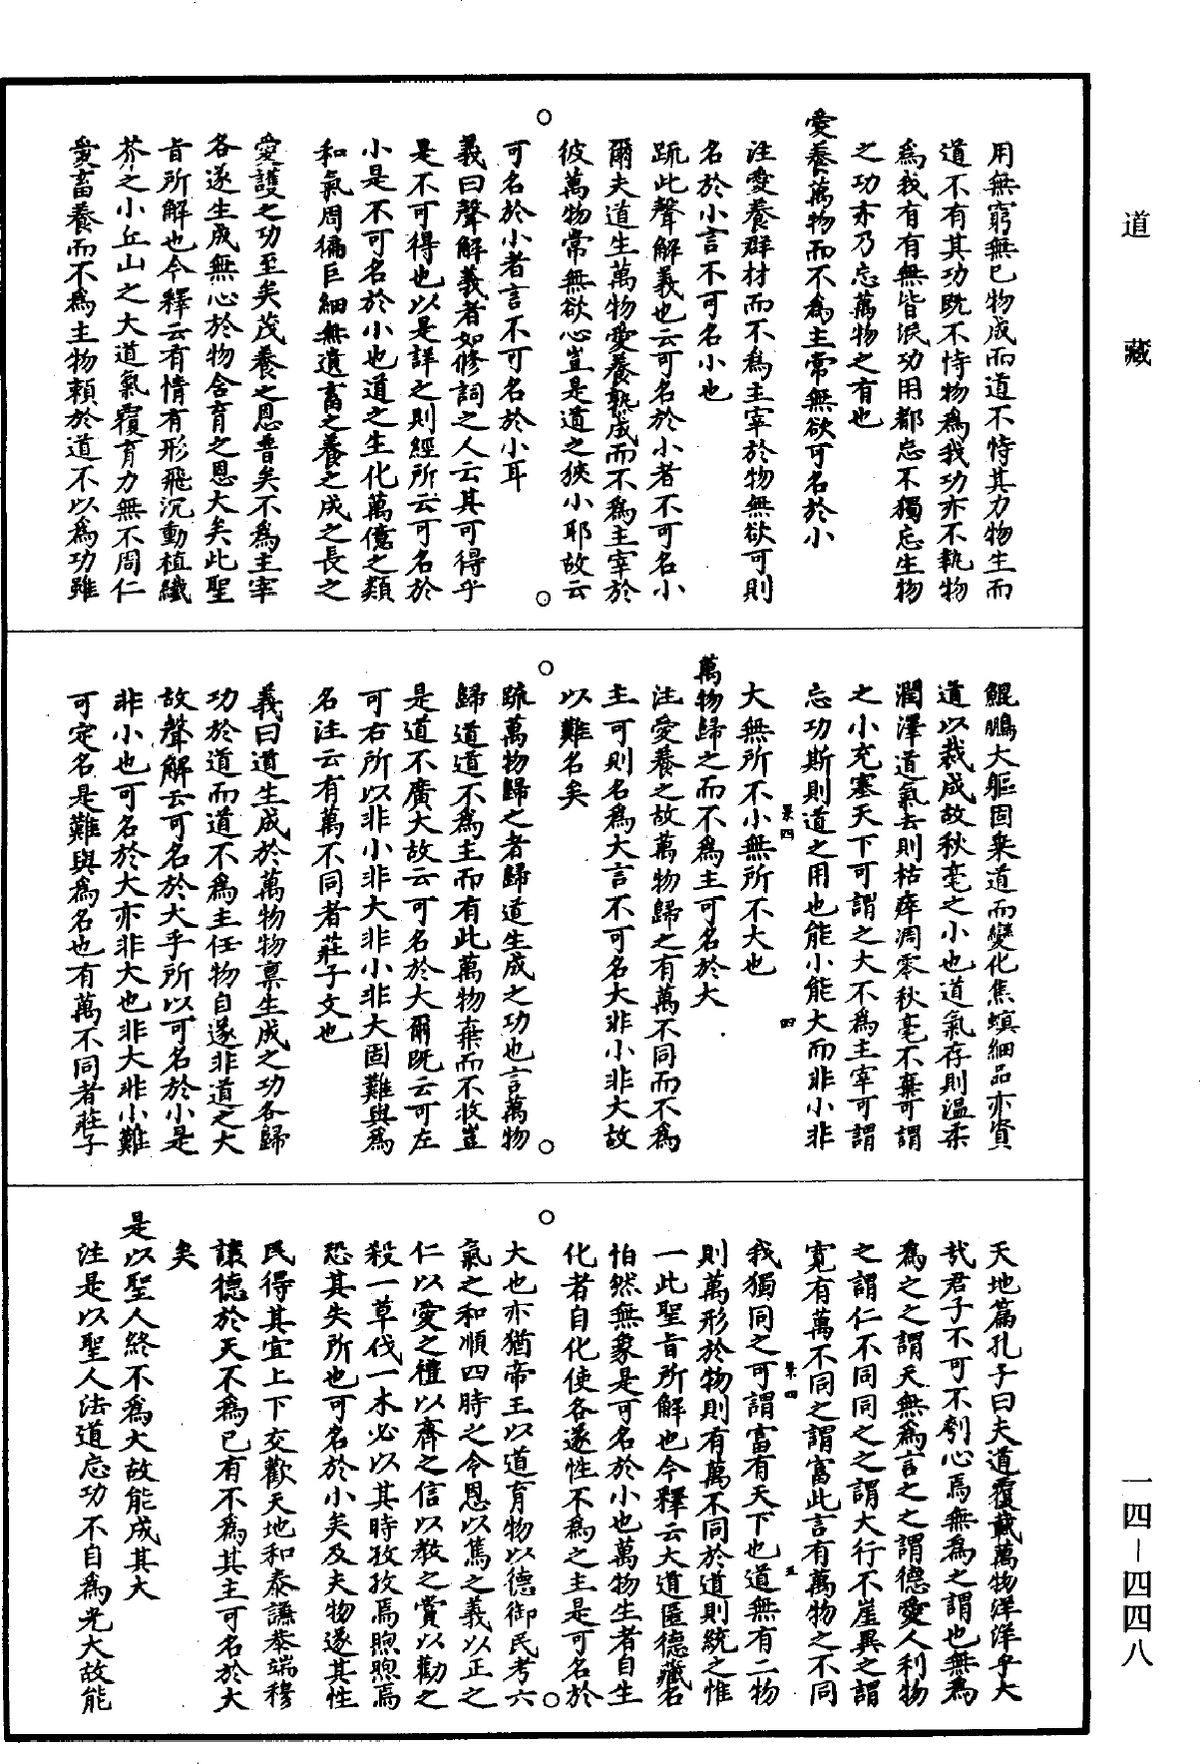 道藏
一四—四四八
用無窮無已物成而道不恃其力物生而
道不有其功既不恃物爲我功亦不執物
爲我有有無皆泯功用都忘不獨忘生物
之功亦乃忘萬物之有也
愛養萬物而不爲主常無欲可名於小
注愛養群材而不爲主宰於物無欲可則
名於小言不可名小也
疏此聲解義也云可名於小者不可名小
爾夫道生萬物愛養熟成而不爲主宰於
彼萬物常無欲心豈是道之狹小耶故云
可名於小者言不可名於小耳
義曰聲解義者如修詞之人云其可得乎
是不可得也以是詳之則經所云可名於
小是不可名於小也道之生化萬億之類
和氣周徧巨細無遺畜之養之成之長之
愛護之功至矣茂養之恩普矣不爲主宰
各遂生成無心於物含育之恩大矣此聖
旨所解也今釋云有情有形飛沉動植纖
芥之小丘山之大道氣覆育力無不周仁
愛畜養而不爲主物賴於道不以爲功雖
鯤鵬大軀固乗道而變化焦螟細品亦資
道以裁成故秋毫之小也道氣存則温柔
潤澤道氣去則枯瘁凋零秋毫不棄可謂
之小充塞天下可謂之大不爲主宰可謂
忘功斯則道之用也能小能大而非小非
大無所不小無所不大也
萬物歸之而不爲主可名於大
注愛養之故萬物歸之有萬不同而不爲
主可則名爲大言不可名大非小非大故
以難名矣
疏萬物歸之者歸道生成之功也言萬物
歸道道不爲主而有此萬物棄而不收豈
是道不廣大故云可名於大爾既云可左
可右所以非小非大非小非大固難與爲
名注云有萬不同者莊子文也
義曰道生成於萬物物禀生成之功各歸
功於道而道不爲主任物自遂非道之大
故聲解云可名於大乎所以可名於小是
非小也可名於大亦非大也非大非小難
可定名是難與爲名也有萬不同者莊子
天地篇孔子曰夫道覆載萬物洋洋乎大
哉君子不可不刳心焉無爲之謂也無爲
爲之之謂天無爲言之之謂德愛人利物
之謂仁不同同之之謂大行不崖異之謂
寛有萬不同之謂富此言有萬物之不同
我獨同之可謂富有天下也道無有二物
則萬形於物則有萬不同於道則統之惟
一此聖旨所解也今釋云大道匿德藏名
怕然無象是可名於小也萬物生者自生
化者自化使各遂性不爲之主是可名於
大也亦猶帝王以道育物以德御民考六
氣之和順四時之令恩以篤之義以正之
仁以愛之禮以齊之信以教之賞以勸之
殺一草伐一木必以其時孜孜焉煦煦焉
恐其失所也可名於小矣及夫物遂其性
民得其宜上下交歡天地和泰謙恭端穆
讓德於天不爲己有不爲其主可名於大
矣
是以聖人終不爲大故能成其大
注是以聖人法道忘功不自爲光大故能